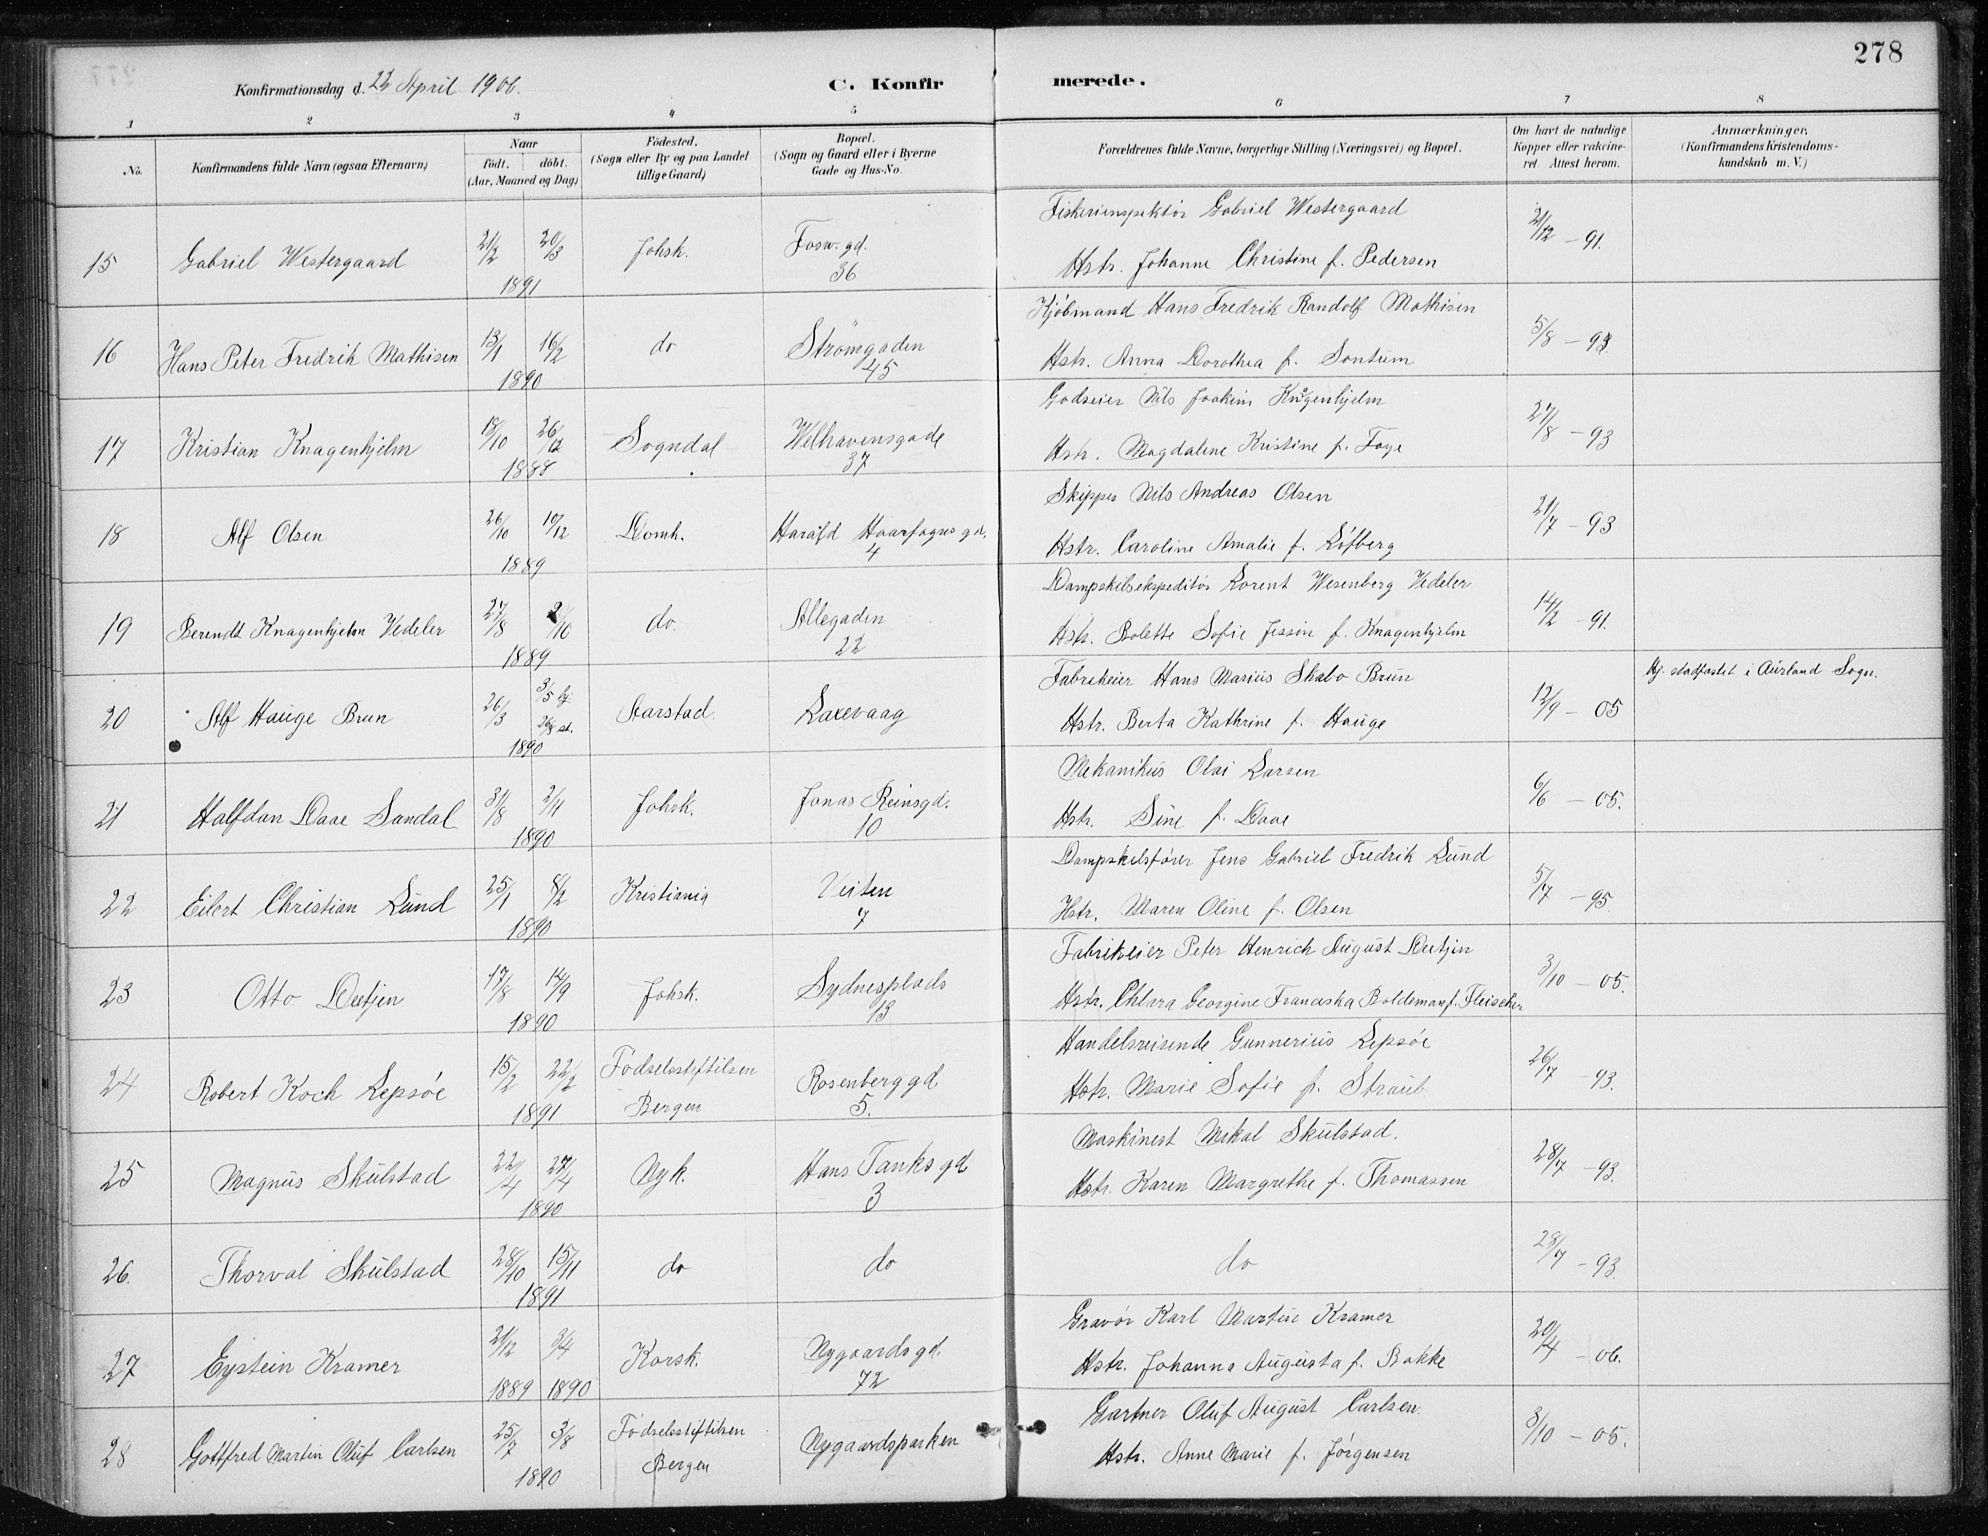 278
Konfirmationsdag d. 22 April 1906.
C. Konfirmerede.
1 2 3 4 5 6 7 8
No.
Konfirmandens fulde Navn (ogsaa Efternavn)
Naar
födt. döbt.
(Aar, Maaned og Dag)
Födested.
(Sogn eller By og paa Landet
tillige Gaard)
Bopæl.
(Sogn og Gaard eller i Byerne
Gade og Hus-No.
Forældrenes fulde Navne, borgerlige Stilling (Næringsvei) og Bopæl.
Om havt de naturlige
Kopper eller vakcine-
ret Attest herom.
Anmærkninger.
(Konfirmandens Kristendoms-
kundskab m. V.)
15 Gabriel Westergaard 21/2 20/3 1891 Johsk. Fosw. gd. 36
Fiskeriinspektör Gabriel Westergaard
Hstr. Johanne Christine f. Pedersen
21/12 - 91.
16 Hans Peter Fredrik Mathisen 13/1 16/2 1890 do Strömgaden 45
Kjöbmand Hans Fredrik Randolf Mathisen
Hstr. Anna Dorothea f. Sontum
5/8 - 93
17 Kristian Knagenhjelm 18/10 26/12 1888 Sogndal Welhavensgade 37
Godseier Nils Joakim Knagenhjelm
Hstr. Magdalene Kristine f. Foye
27/8 - 93
18 Alf Olsen 26/10 10/12 1889 Domk. Harald Haarfagres gd. 4
Skipper Nils Andreas Olsen
Hstr. Caroline Amalie f. Löfberg
21/7 - 93
19 Berendt Knagenhjelm Vedeler 27/8 2/10 1889 do. Allegaden 22
Dampskibsekspeditör Lorent Wesenberg Vedeler
Hstr. Bolette Sofie Jessin f. Knagenhjelm
14/2 - 91.
20 Alf Hauge Brun 26/3 3/5 hj. 26/8 st. 1890 Aarstad. Laxevaag
Fabrikeier Hans Marius Skabo Brun
Hstr. Berta Kathrine f. Hauge
12/9 - 05
Hj. stadfæstet i Aurland Sogn.
21 Halfdan Daae Sandal 31/8 2/11 1890 Johsk. Jonas Reinsgd. 10
Mekanikus Olai Larsen
Hstr. Sine f. Daae
6/6 - 05.
22 Eilert Christian Lund 25/1 8/2 1890 Kristiania Veiten 7
Dampskibsförer Jens Gabriel Fredrik Lund
Hstr. Maren Oline f. Olsen
5/7 - 95
23 Otto Detjen 17/8 14/9 1890 Johsk. Sydnesplads 13
Fabrikeier Peter Henrich August Detjen
Hstr. Chlara Georgine Franciska Boldeman f. Fleischer
3/10 - 05.
24 Robert Koch Lepsöe 15/2 22/2 1891 Födselsstiftelsen Bergen Rosenberggd 5.
Handelsreisende Gunnerius Lepsöe
Hstr. Marie Sofie f. Straub
26/7 - 93.
25 Magnus Skulstad 22/4 27/4 1890 Nyk. Hans Tanks gd 3
Maskinest Mikal Skulstad.
Hstr. Karen Margrethe f. Thomassen
28/7 - 93.
26. Thorval Skulstad 28/10 15/11 1891 do do
do
28/7 - 93.
27 Eystein Kramer 21/12 3/4 1889 1890 Korsk. Nygaardsgd. 72
Gravör Karl Martin Kramer
Hstr. Johanna Augusta f. Bakke
20/4 - 06.
28 Gottfred Martin Oluf Carlsen 25/7 3/8 1890 Födselsstiftelsen Bergen Nygaardsparken
Gartner Oluf August Carlsen.
Hstr. Anne Marie f. Jörgensen
3/10 - 05.